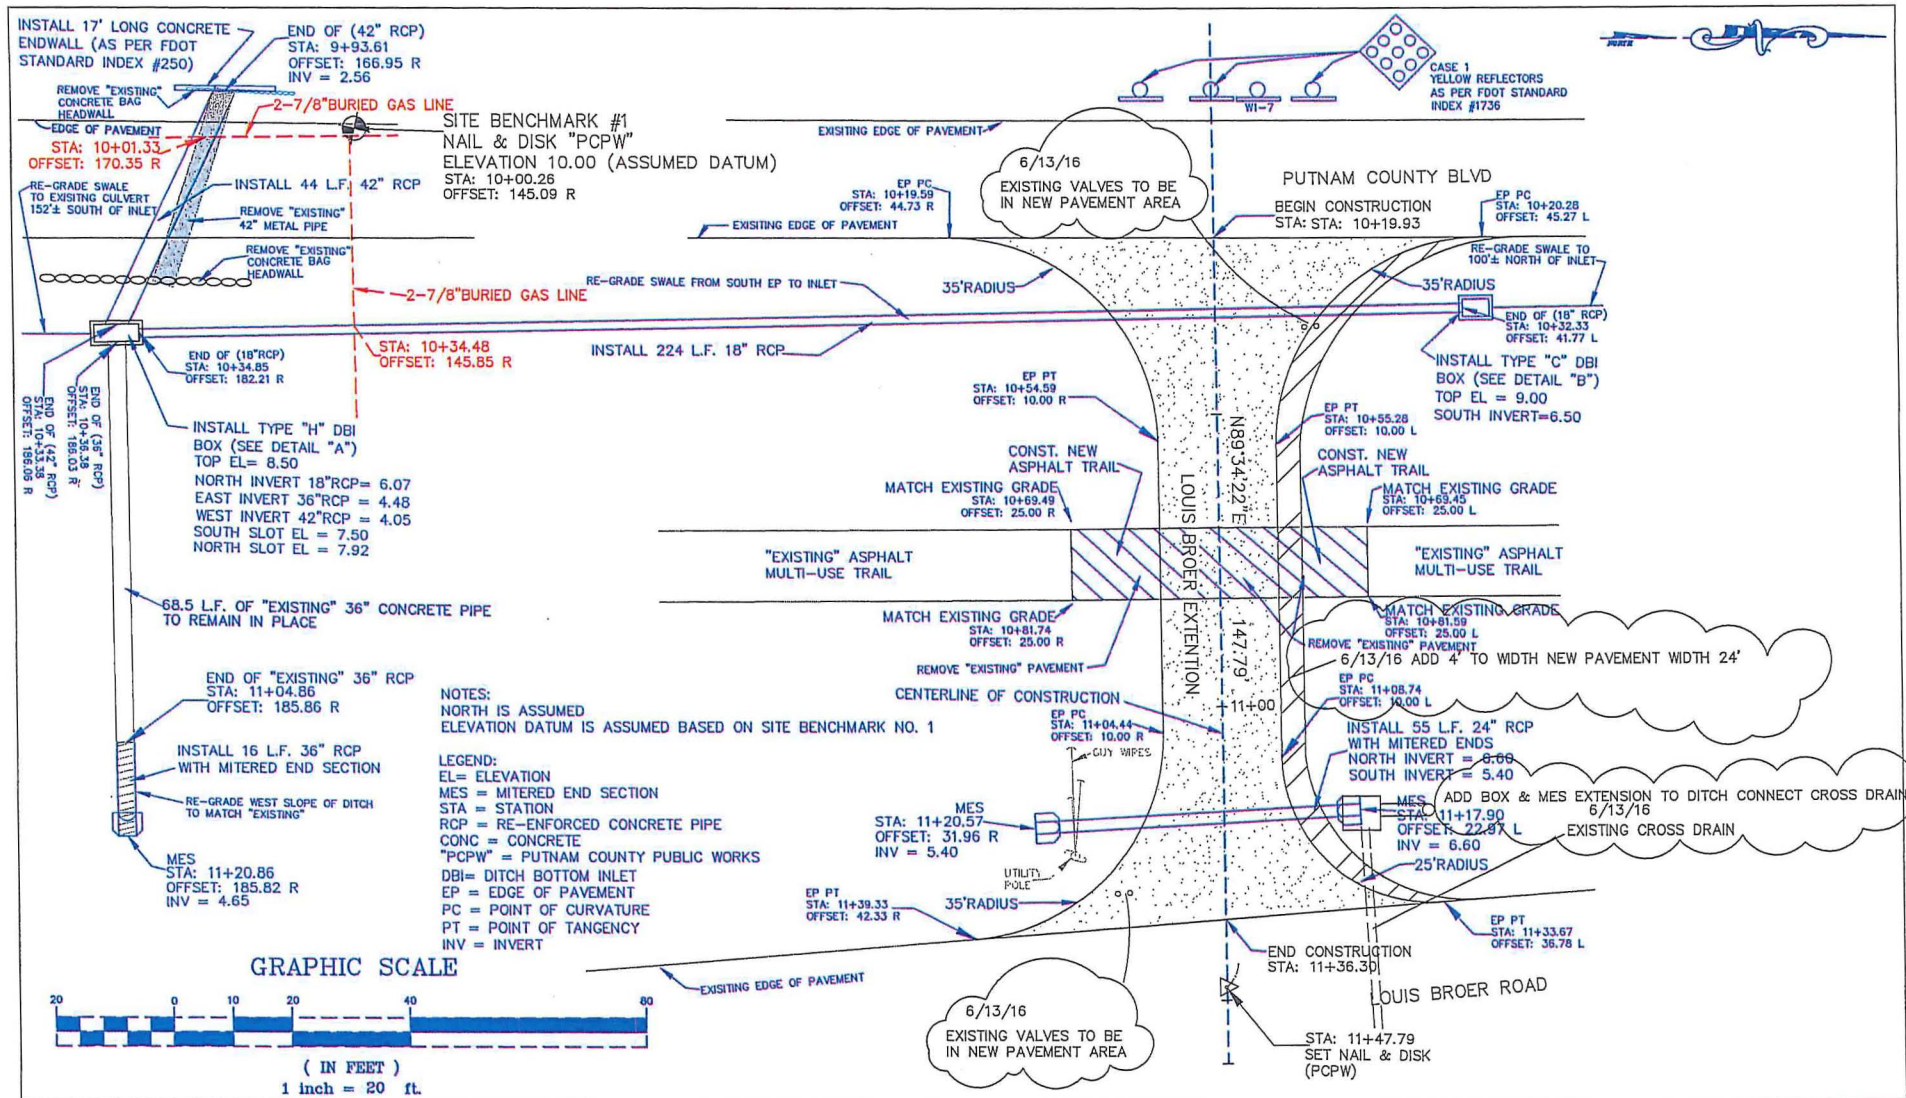 INSTALL 17' LONG CONCRETE
ENDWALL (AS PER FDOT
STANDARD INDEX #250)
END OF (42" RCP)
STA: 9+93.61
OFFSET: 166.95 R
INV = 2.56
REMOVE "EXISTING"
CONCRETE BAG
HEADWALL
2-7/8"BURIED GAS LINE
EDGE OF PAVEMENT
STA: 10+01.33
OFFSET: 170.35 R
SITE BENCHMARK #1
NAIL & DISK "PCPW"
ELEVATION 10.00 (ASSUMED DATUM)
STA: 10+00.26
OFFSET: 145.09 R
RE-GRADE SWALE
TO EXISITNG CULVERT
152'± SOUTH OF INLET
INSTALL 44 L.F. 42" RCP
REMOVE "EXISTING"
42" METAL PIPE
REMOVE "EXISTING"
CONCRETE BAG
HEADWALL
2-7/8"BURIED GAS LINE
STA: 10+34.48
OFFSET: 145.85 R
END OF (18"RCP)
STA: 10+34.85
OFFSET: 182.21 R
END OF (36" RCP)
STA: 10+36.38
OFFSET: 186.03 R
END OF (42" RCP)
STA: 10+33.38
OFFSET: 186.06 R
INSTALL TYPE "H" DBI
BOX (SEE DETAIL "A")
TOP EL= 8.50
NORTH INVERT 18"RCP= 6.07
EAST INVERT 36"RCP = 4.48
WEST INVERT 42"RCP = 4.05
SOUTH SLOT EL = 7.50
NORTH SLOT EL = 7.92
68.5 L.F. OF "EXISTING" 36" CONCRETE PIPE
TO REMAIN IN PLACE
END OF "EXISTING" 36" RCP
STA: 11+04.86
OFFSET: 185.86 R
INSTALL 16 L.F. 36" RCP
WITH MITERED END SECTION
RE-GRADE WEST SLOPE OF DITCH
TO MATCH "EXISTING"
MES
STA: 11+20.86
OFFSET: 185.82 R
INV = 4.65
NOTES:
NORTH IS ASSUMED
ELEVATION DATUM IS ASSUMED BASED ON SITE BENCHMARK NO. 1
LEGEND:
EL= ELEVATION
MES = MITERED END SECTION
STA = STATION
RCP = RE-ENFORCED CONCRETE PIPE
CONC = CONCRETE
"PCPW" = PUTNAM COUNTY PUBLIC WORKS
DBI= DITCH BOTTOM INLET
EP = EDGE OF PAVEMENT
PC = POINT OF CURVATURE
PT = POINT OF TANGENCY
INV = INVERT
GRAPHIC SCALE
20 0 10 20 40 80
( IN FEET )
1 inch = 20 ft.
NORTH
CASE 1
YELLOW REFLECTORS
AS PER FDOT STANDARD
INDEX #1736
W1-7
EXISITING EDGE OF PAVEMENT
6/13/16
EXISTING VALVES TO BE
IN NEW PAVEMENT AREA
PUTNAM COUNTY BLVD
EP PC
STA: 10+19.59
OFFSET: 44.73 R
BEGIN CONSTRUCTION
STA: STA: 10+19.93
EP PC
STA: 10+20.28
OFFSET: 45.27 L
EXISITING EDGE OF PAVEMENT
RE-GRADE SWALE TO
100'± NORTH OF INLET
RE-GRADE SWALE FROM SOUTH EP TO INLET
35'RADIUS
35'RADIUS
INSTALL 224 L.F. 18" RCP
END OF (18" RCP)
STA: 10+32.33
OFFSET: 41.77 L
INSTALL TYPE "C" DBI
BOX (SEE DETAIL "B")
TOP EL = 9.00
SOUTH INVERT=6.50
EP PT
STA: 10+54.59
OFFSET: 10.00 R
EP PT
STA: 10+55.28
OFFSET: 10.00 L
N89°34'22"E
147.79'
LOUIS BROER EXTENTION
CONST. NEW
ASPHALT TRAIL
CONST. NEW
ASPHALT TRAIL
MATCH EXISTING GRADE
STA: 10+69.49
OFFSET: 25.00 R
MATCH EXISTING GRADE
STA: 10+69.45
OFFSET: 25.00 L
"EXISTING" ASPHALT
MULTI-USE TRAIL
"EXISTING" ASPHALT
MULTI-USE TRAIL
MATCH EXISTING GRADE
STA: 10+81.74
OFFSET: 25.00 R
MATCH EXISTING GRADE
STA: 10+81.59
OFFSET: 25.00 L
REMOVE "EXISTING" PAVEMENT
REMOVE "EXISTING" PAVEMENT
6/13/16 ADD 4' TO WIDTH NEW PAVEMENT WIDTH 24'
CENTERLINE OF CONSTRUCTION
11+00
EP PC
STA: 11+04.44
OFFSET: 10.00 R
EP PC
STA: 11+08.74
OFFSET: 10.00 L
GUY WIPES
INSTALL 55 L.F. 24" RCP
WITH MITERED ENDS
NORTH INVERT = 6.60
SOUTH INVERT = 5.40
MES
STA: 11+20.57
OFFSET: 31.96 R
INV = 5.40
MES
STA: 11+17.90
OFFSET: 22.97 L
INV = 6.60
ADD BOX & MES EXTENSION TO DITCH CONNECT CROSS DRAIN
6/13/16
EXISTING CROSS DRAIN
UTILITY
POLE
25'RADIUS
35'RADIUS
EP PT
STA: 11+39.33
OFFSET: 42.33 R
EP PT
STA: 11+33.67
OFFSET: 36.78 L
END CONSTRUCTION
STA: 11+36.30
EXISITING EDGE OF PAVEMENT
LOUIS BROER ROAD
6/13/16
EXISTING VALVES TO BE
IN NEW PAVEMENT AREA
STA: 11+47.79
SET NAIL & DISK
(PCPW)